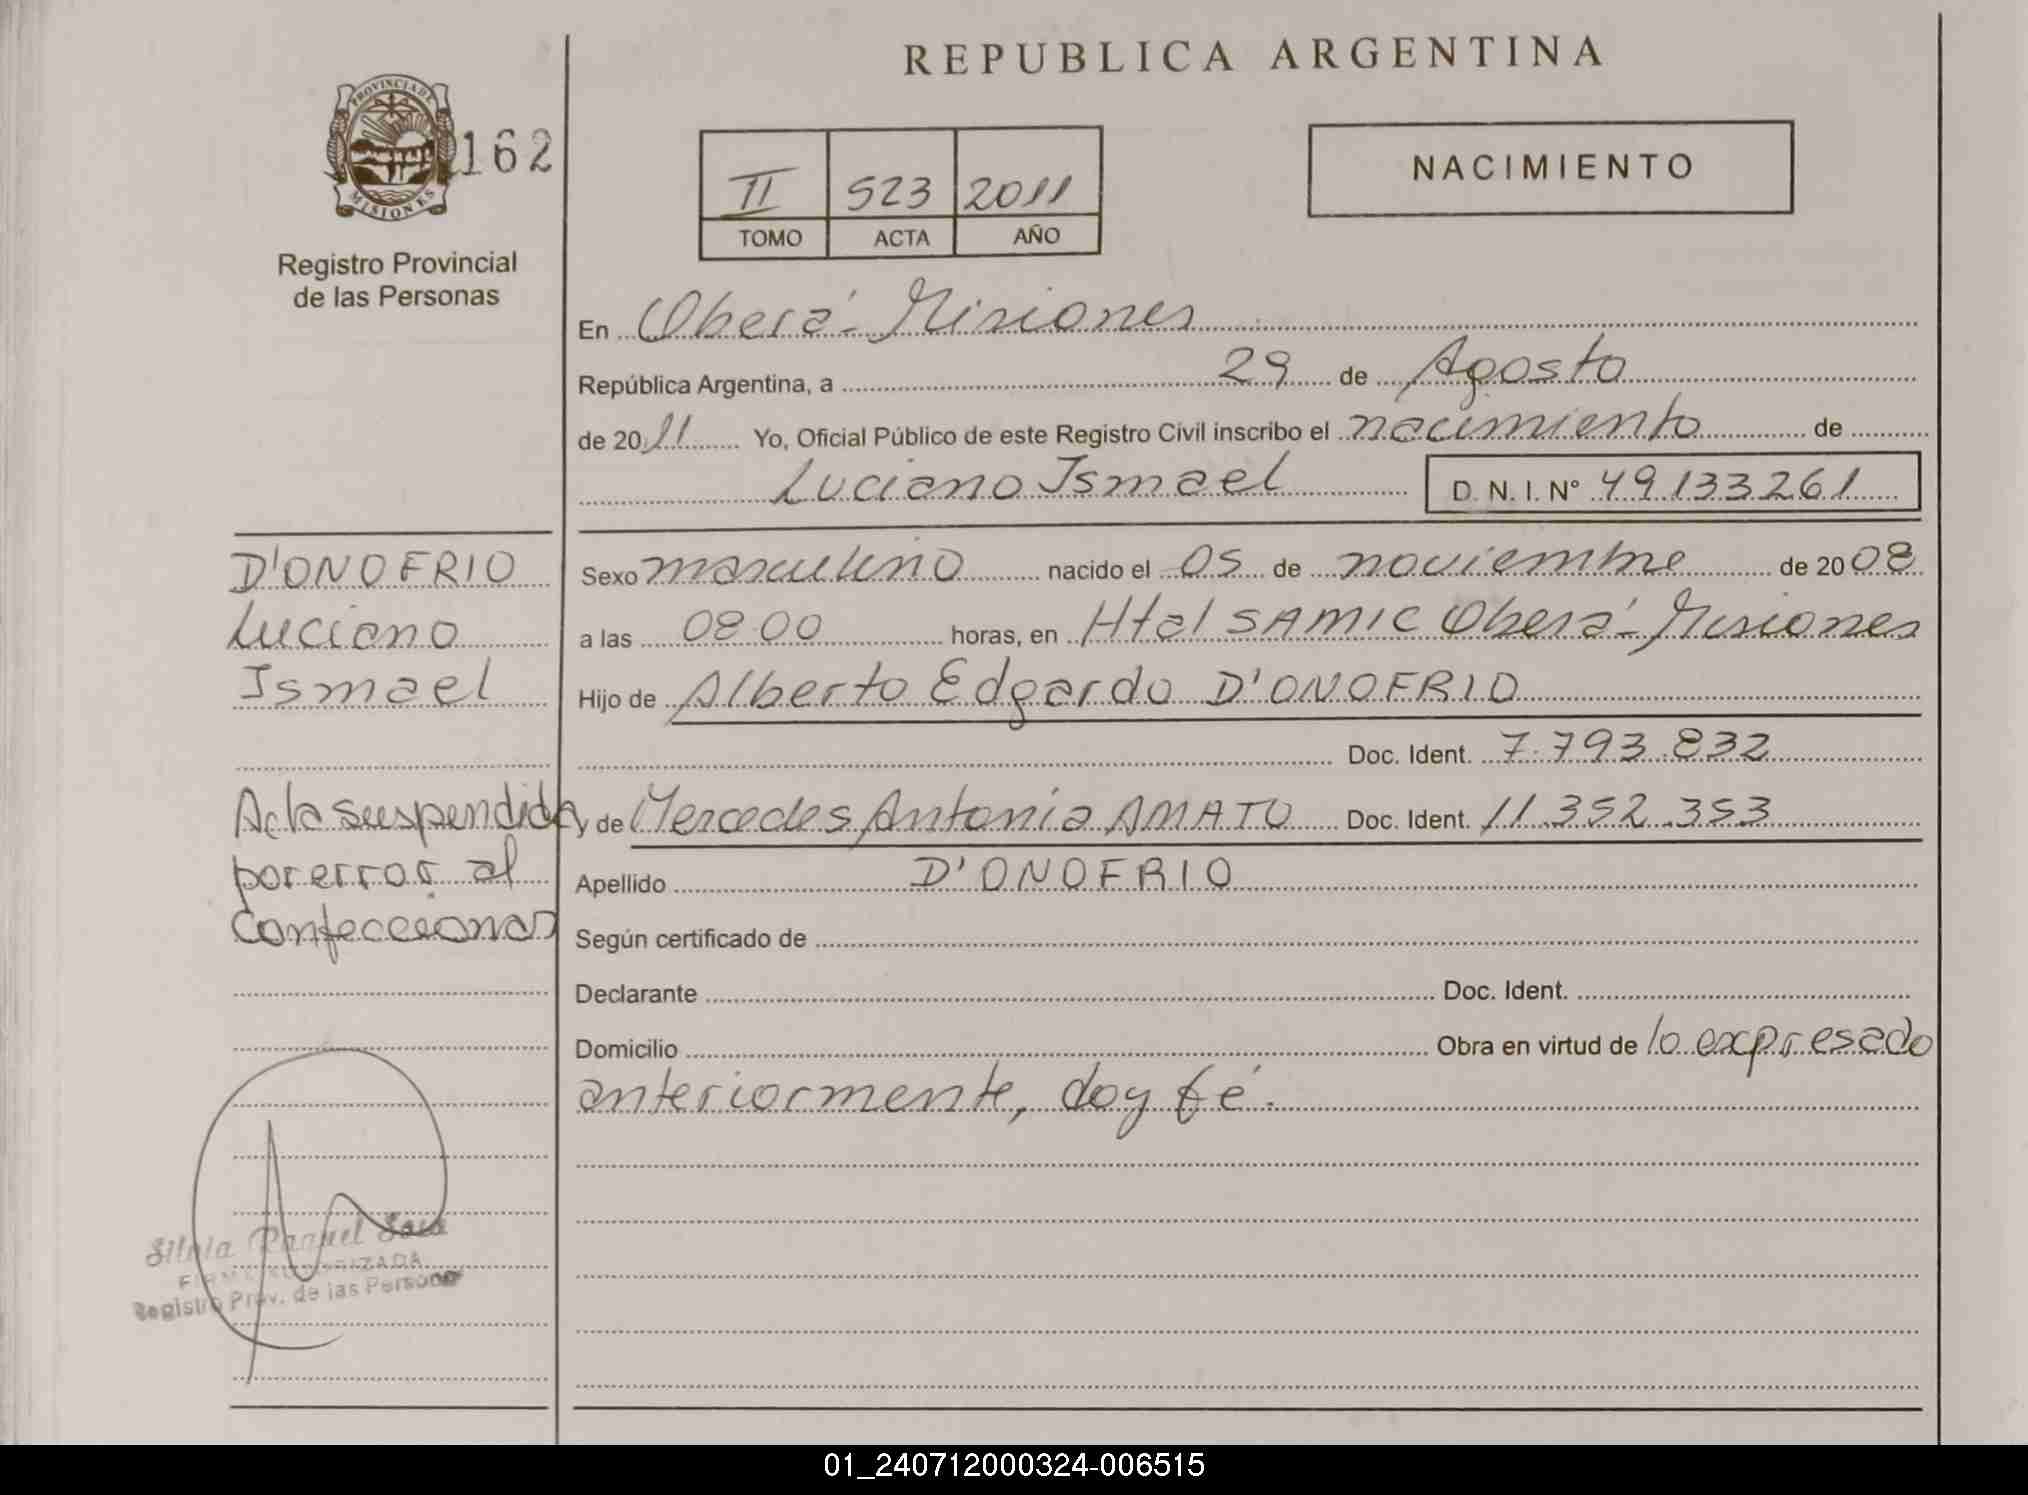 REPUBLICA ARGENTINA
PROVINCIA DE
MISIONES
162
Registro Provincial
de las Personas
II 523 2011
TOMO ACTA AÑO
NACIMIENTO
En Oberá - Misiones
República Argentina, a 29 de Agosto
de 2011 Yo, Oficial Público de este Registro Civil inscribo el nacimiento de
Luciano Ismael D. N. I. N° 49.133.261
D'ONOFRIO
Luciano
Ismael
Acta suspendida
por error al
confeccionar
Sexo masculino nacido el 05 de noviembre de 2008
a las 08:00 horas, en Htal SAMIC Oberá - Misiones
Hijo de Alberto Edgardo D'ONOFRIO
Doc. Ident. 7.793.832
y de Mercedes Antonia AMATO Doc. Ident. 11.352.353
Apellido D'ONOFRIO
Según certificado de
Declarante Doc. Ident.
Domicilio Obra en virtud de lo expresado
anteriormente, doy fé.
Silvia Raquel Sosa
FIRMA AUTORIZADA
Registro Prov. de las Personas
01_240712000324-006515